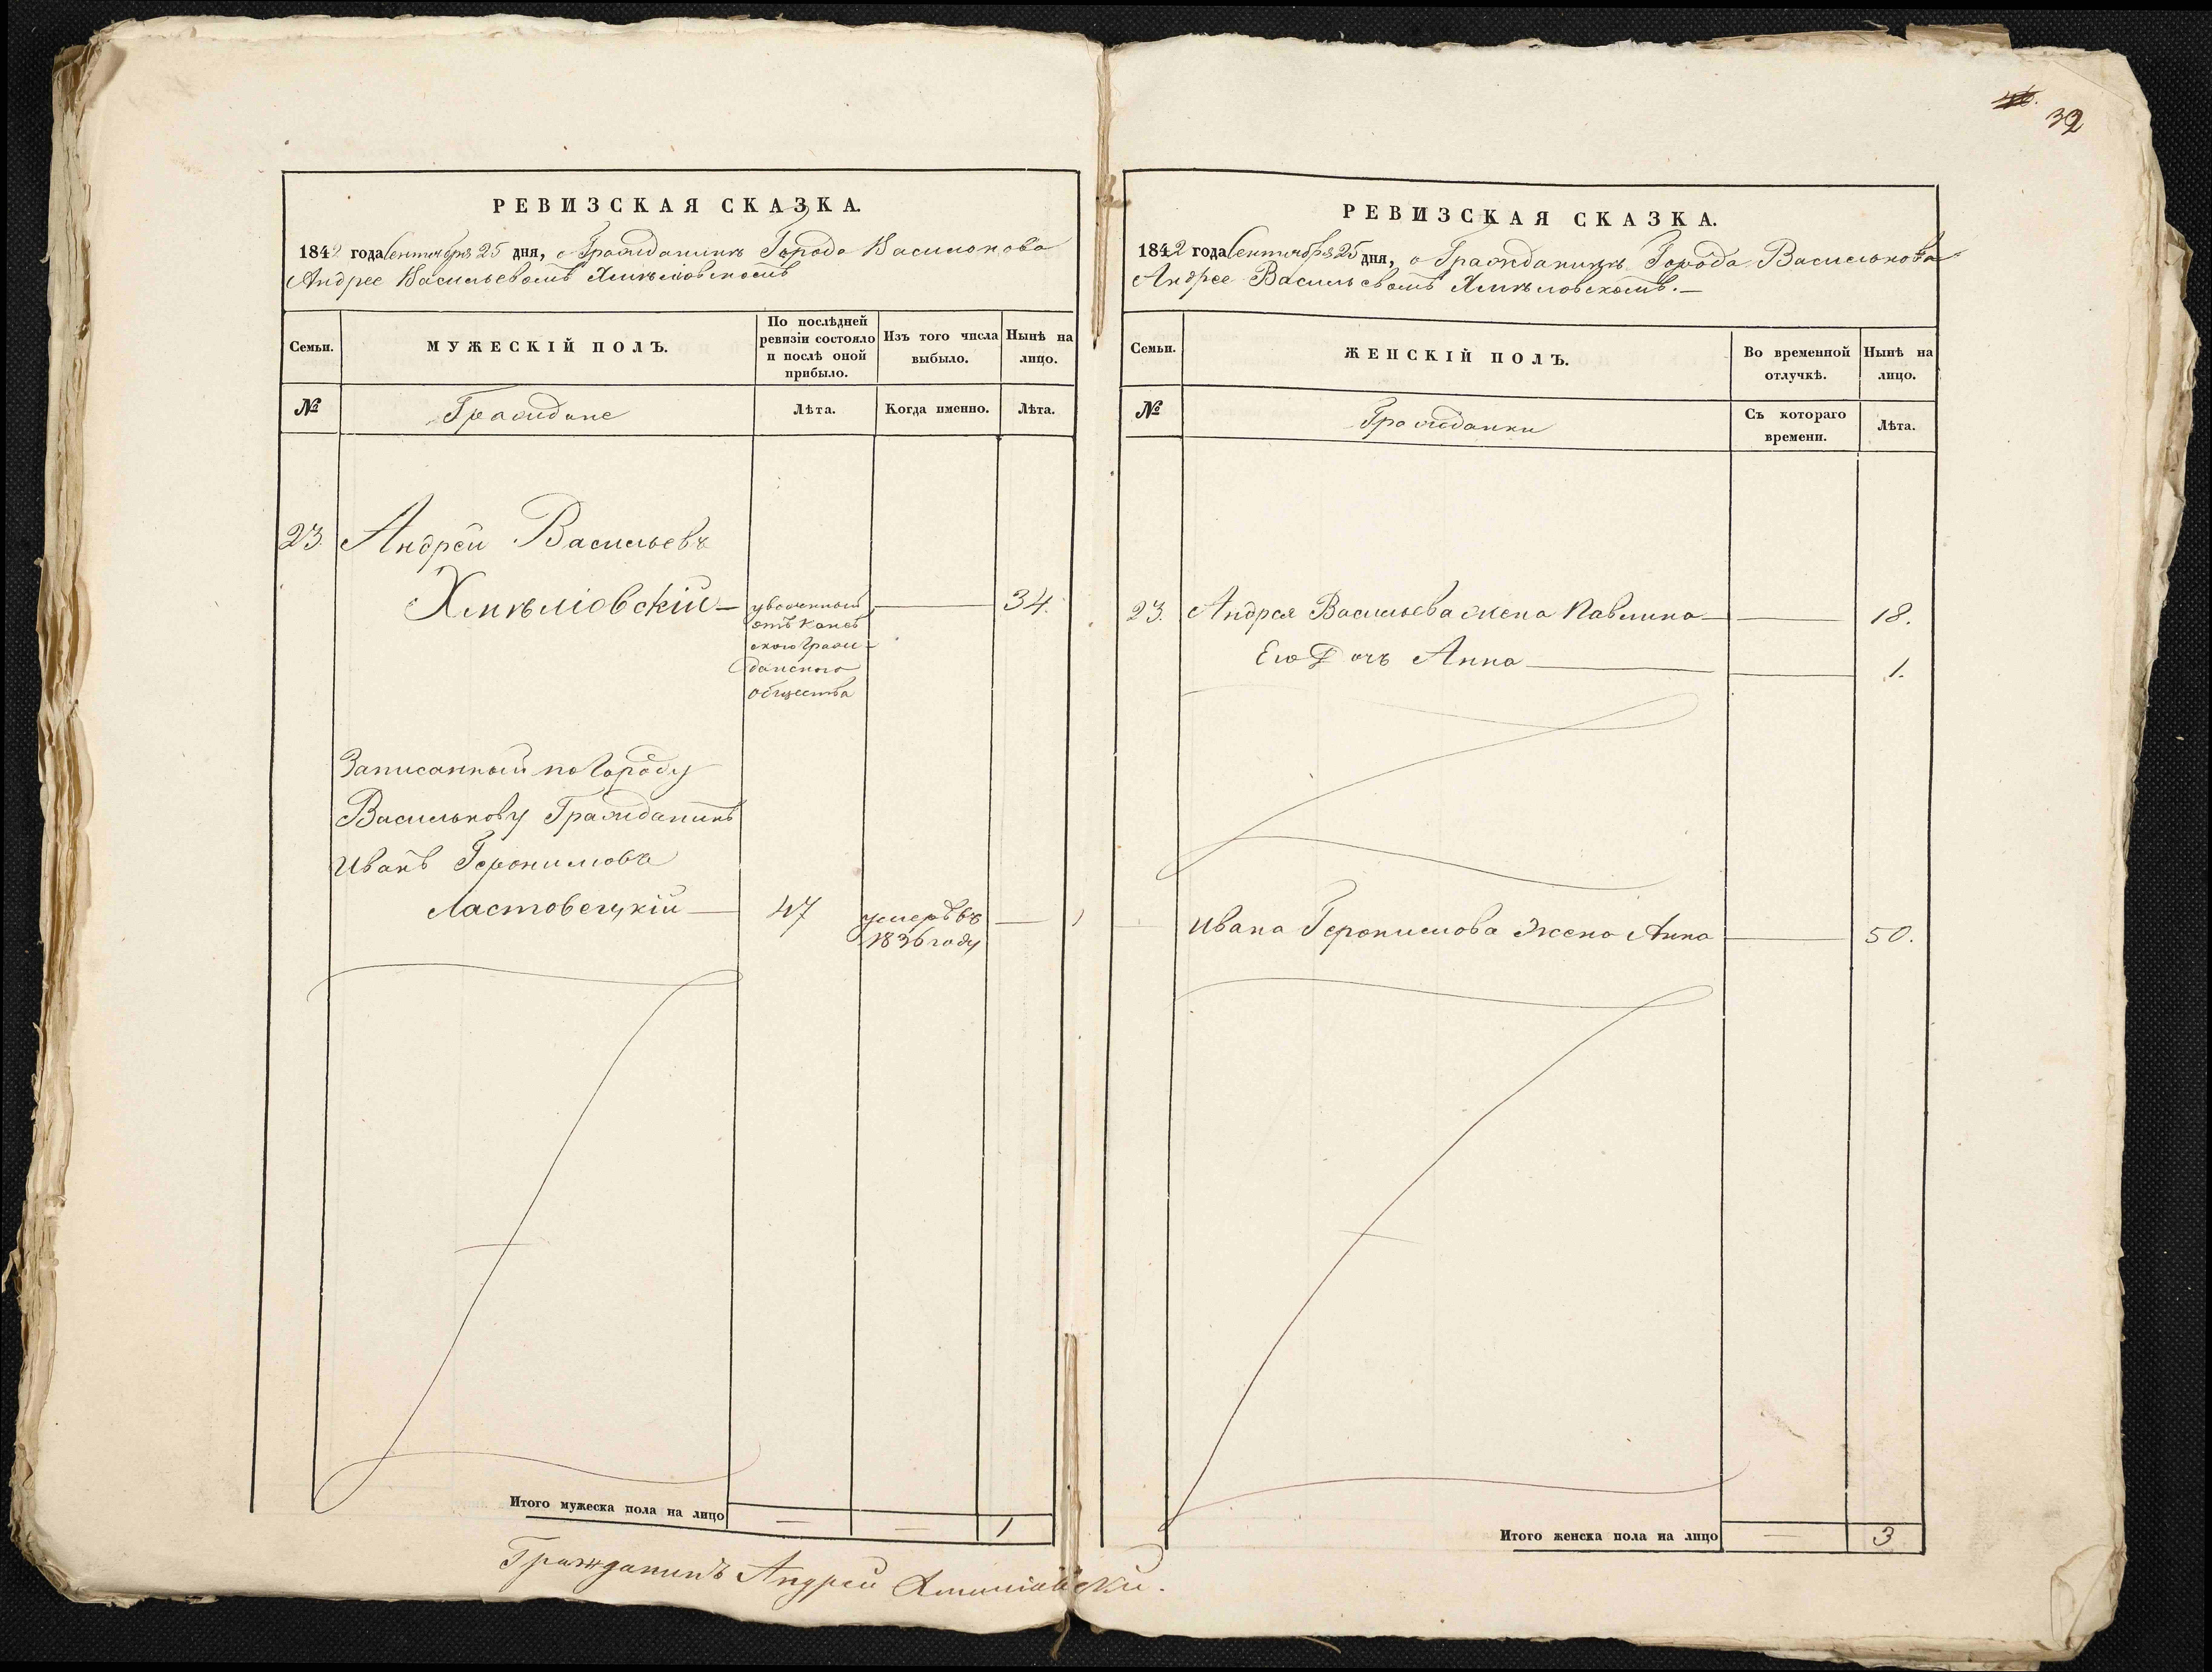 32
РЕВИЗСКАЯ СКАЗКА.
1842 года Сентября 25 дня, о Гражданинѣ Города Василькова
Андрее Васильевомъ Хмѣліовскомъ
Семьи.
МУЖЕСКІЙ ПОЛЪ.
По послѣдней
ревизіи состояло
и послѣ оной
прибыло.
Изъ того числа
выбыло.
Нынѣ на
лицо.
№
Граждане
Лѣта.
Когда именно.
Лѣта.
23. Андрей Васильевъ
Хмѣліовскій — 34.
отъ Канев
скаго Граж-
данскаго
общества
Записанный по Городу
Василькову Гражданинъ
Иванъ Геронимовъ
Ластовецкій — 47 умеръ въ —
1836 году
Итого мужеска пола на лицо — — 1
Гражданинъ Андрей
РЕВИЗСКАЯ СКАЗКА.
1842 года Сентября 25 дня, о Гражданинѣ Города Василькова
Андрее Васильевомъ Хмѣловскомъ.—
Семьи.
ЖЕНСКІЙ ПОЛЪ.
Во временной
отлучкѣ.
Нынѣ на
лицо.
№
Гражданки
Съ котораго
времени.
Лѣта.
23. Андрея Васильева жена Павлина — — 18.
Его Дочь Анна — — 1.
Ивана Геронимова жена Анна — 50.
Итого женска пола на лицо — 3